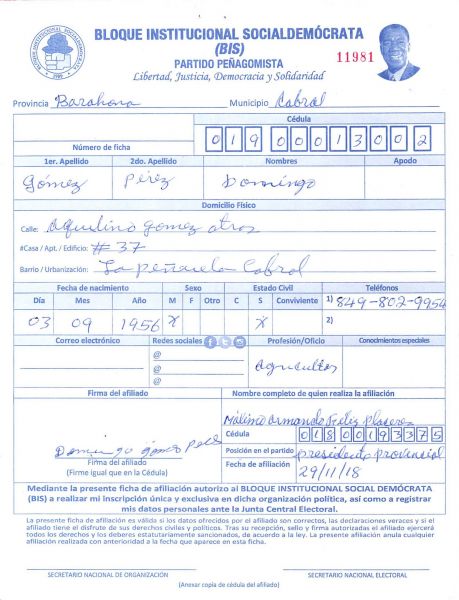 BLOQUE INSTITUCIONAL SOCIALDEMÓCRATA
(BIS)
PARTIDO PEÑAGOMISTA
Libertad, Justicia, Democracia y Solidaridad
11981
Provincia Barahona Municipio Cabral
Cédula
Número de ficha 01900013002
1er. Apellido 2do. Apellido Nombres Apodo
Gómez Pérez Domingo
Domicilio Físico
Calle: Aquilino gomez atras
#Casa / Apt. / Edificio: # 37
Barrio / Urbanización: La peñuela Cabral
Fecha de nacimiento Sexo Estado Civil Teléfonos
Día Mes Año M F Otro C S Conviviente 1) 849-802-9954
03 09 1956 X X 2)
Correo electrónico Redes sociales Profesión/Oficio Conocimientos especiales
@
@ Agricultor
@
Firma del afiliado Nombre completo de quien realiza la afiliación
Armando Feliz
Cédula 01800193375
Domingo gómez
Posición en el partido presidente provincial
Firma del afiliado
(Firme igual que en la Cédula)
Fecha de afiliación 29/11/18
Mediante la presente ficha de afiliación autorizo al BLOQUE INSTITUCIONAL SOCIAL DEMÓCRATA
(BIS) a realizar mi inscripción única y exclusiva en dicha organización política, así como a registrar
mis datos personales ante la Junta Central Electoral.
La presente ficha de afiliación es válida si los datos ofrecidos por el afiliado son correctos, las declaraciones veraces y si el
afiliado tiene el disfrute de sus derechos civiles y políticos. Tras su recepción, sello y firma autorizada el afiliado ejercerá
todos los derechos y los deberes estatutariamente sancionados, de acuerdo a la ley. La presente afiliación anula cualquier
afiliación realizada con anterioridad a la fecha que aparece en esta ficha.
SECRETARIO NACIONAL DE ORGANIZACIÓN SECRETARIO NACIONAL ELECTORAL
(Anexar copia de cédula del afiliado)